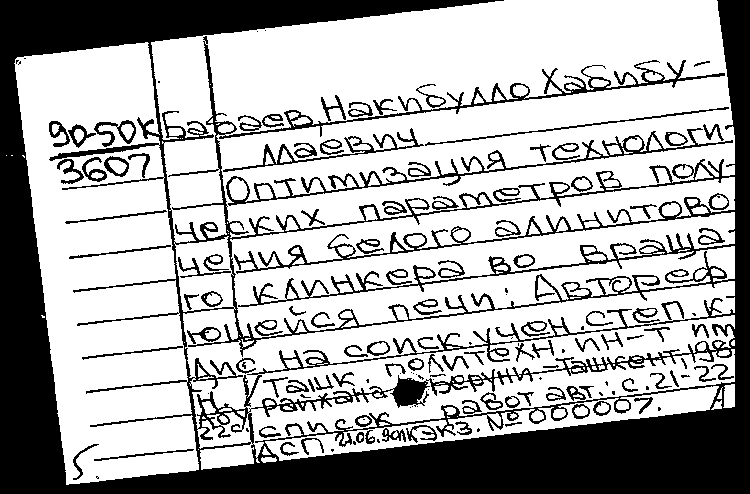 90-50К Бабаев, Накибулло Хабибу-
3607 лаевич
Оптимизация технологи-
ческих параметров полу-
чения белого алинитово-
го клинкера во враща-
ющейся печи: Автореф
дис. на соиск. учен. степ. к.
т. н. / Ташк. политехн. ин-т им
райхана Беруни. - Ташкент, 198
22с список работ авт.: с. 21-22
ДСП. 21.06.90 экз. № 000007. А
5.